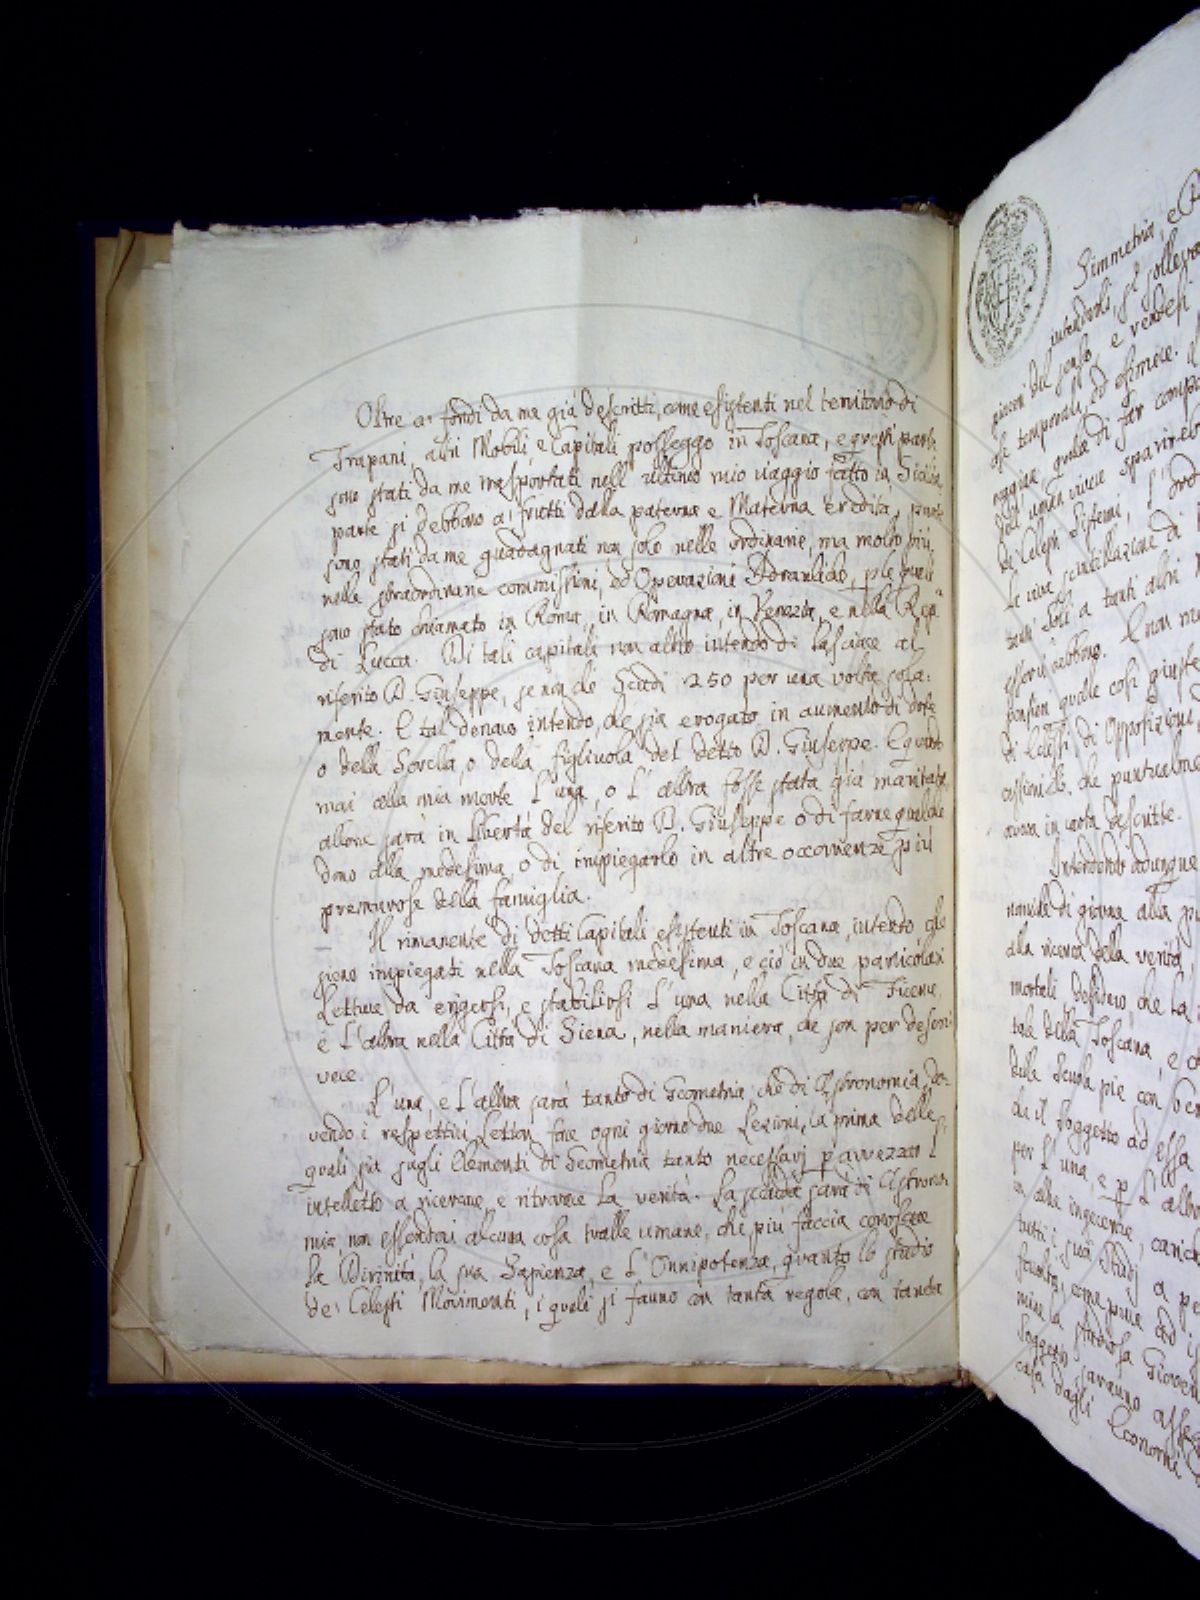 Oltre a' fondi da me già descritti, come esistenti nel territorio di
Trapani, altri Mobili e Capitali posseggo in Toscana, e questi parte
sono stati da me trasportati nell' ultimo mio viaggio fatto in Sicilia,
parte si debbono a' frutti dalla paterna e Materna eredità, parte
sono stati da me guadagnati non solo nelle ordinarie, ma molto più
nelle straordinarie commissioni, ed Operazioni Idrauliche, p le quali
sono stato chiamato in Roma, in Romagna, in Venezia, e nella Rep.ª
di Lucca. Di tali capitali non altro intendo di lasciare al
riferito D. Giuseppe, se non che Scudi 250 per una volta sola:
mente. E tal denaro intendo, che sia erogato in aumento di dote
o della Sorella, o della figliuola del detto D. Giuseppe. E quando
mai alla mia morte l' una, o l' altra fosse stata già maritata,
allora sarà in libertà del riferito D. Giuseppe o di farne qualche
dono alla medesima, o di impiegarlo in altre occorrenze più
premurose della famiglia.
Il rimanente di detti Capitali esistenti in Toscana, intendo che
sieno impiegati nella Toscana medesima, e ciò in due particolari
Letture da erigersi, e stabilirsi l' una nella Città di Firenze,
e l' altra nella Città di Siena, nella maniera, che son per descri:
vere.
L' una, e l' altra sarà tanto di Geometria, che di Astronomia, do:
vendo i respettivi Lettori fare ogni giorno due Lezioni, la prima delle
quali sia sugli Elementi di Geometria tanto necessarj p avvezzar l'
intelletto a ricercare, e ritrovare la verità. La seconda sarà di Astrono:
mia, non essendovi alcuna cosa tralle umane, che più faccia conoscere
la Divinità, la sua Sapienza, e l' Onnipotenza, quanto lo studio
de' Celesti Movimenti, i quali si fanno con tanta regola, con tanta
Simmetria, e
intendovi, 
piaceri del senso, e vendesi
temporali, ed
di far
dell' uman vivere
di Celesti Sistemi, l'
la viva scintillazione di
tanti Soli a tanti altri
debbono. E non
quelle così giuste
di Eclissi, di Opposizioni
che puntualmente
in carta descritte.
Intendendo adunque
di giovare alla
alla ricerca della verità,
mortali desidero, che la
tale della Toscana, e
delle Scuole pie con
il Soggetto ad essa
per l' una, e p l' altra
ingerenze,
tutti i suoi Studj a
come pure ad
la studiosa Gioventù
Soggetti saranno
casa dagli Economi